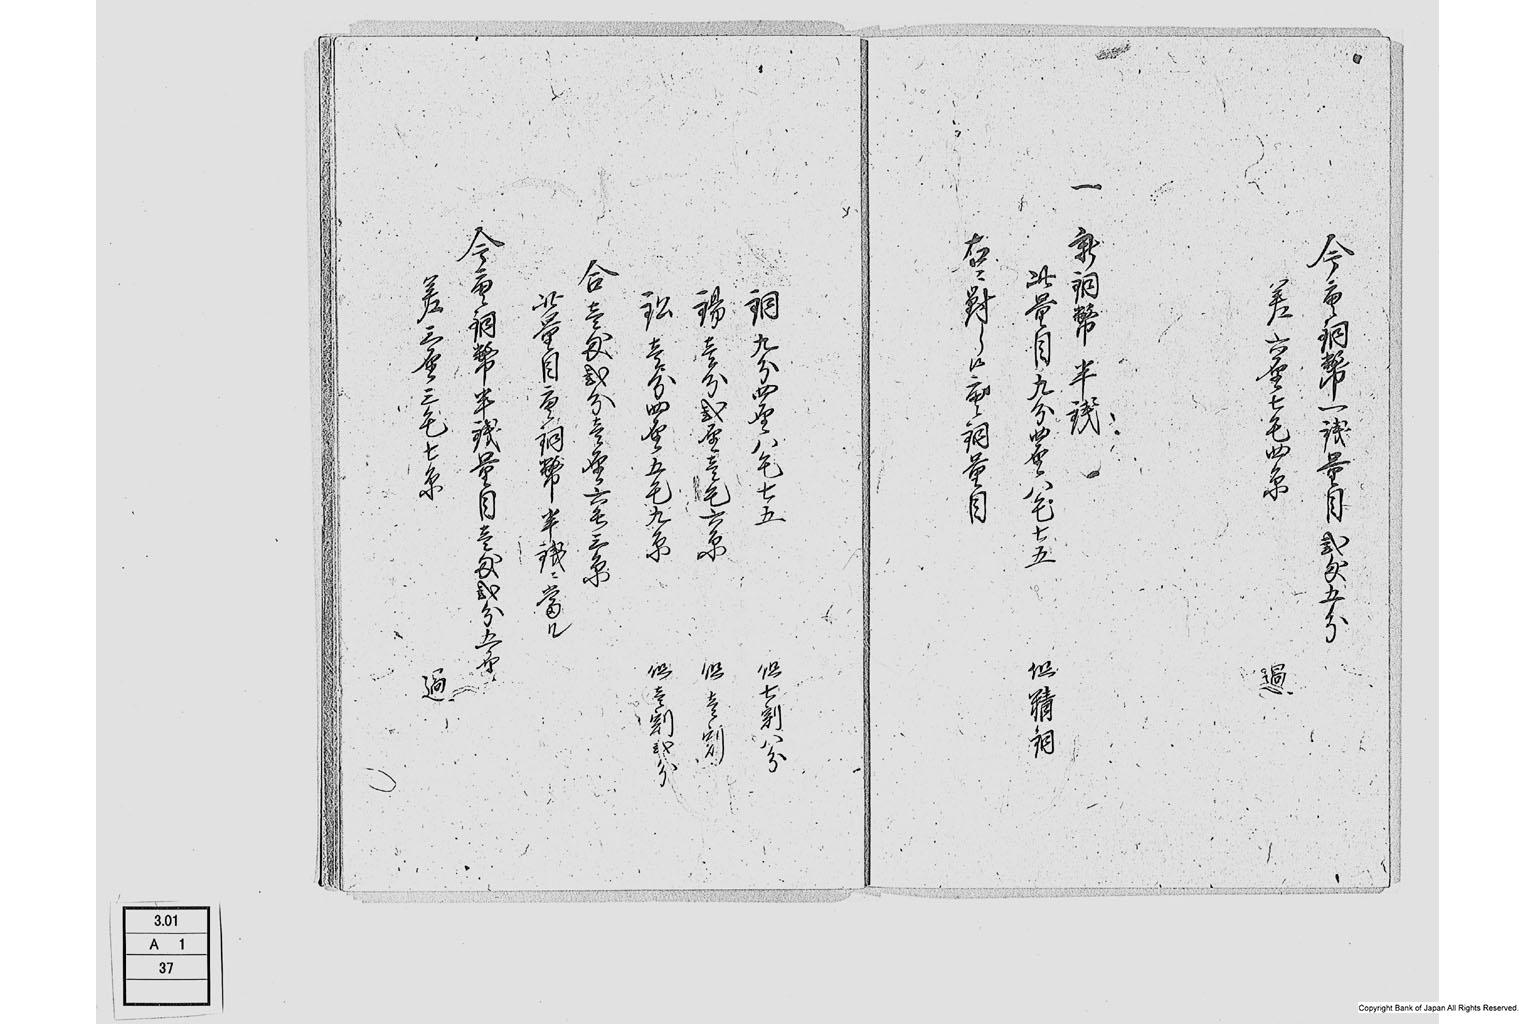 今唐銅幣一銭量目弐匁五分
差六厘七毛四糸 過
一 新銅幣半銭
此量目九分四厘八毛七五 但精銅
右ニ對し候唐銅量目
銅九分四厘八毛七五 但七割八分
錫壱分弐厘壱毛六糸 但壱割
鉛壱分四厘五毛九糸 但壱割弐分
合壱匁弐分壱厘六毛三糸
此量目唐銅幣半銭ニ當ル
今唐銅幣半銭量目壱匁弐分五厘
差三厘三毛七糸 過
3.01
A 1
37
Copyright Bank of Japan All Rights Reserved.